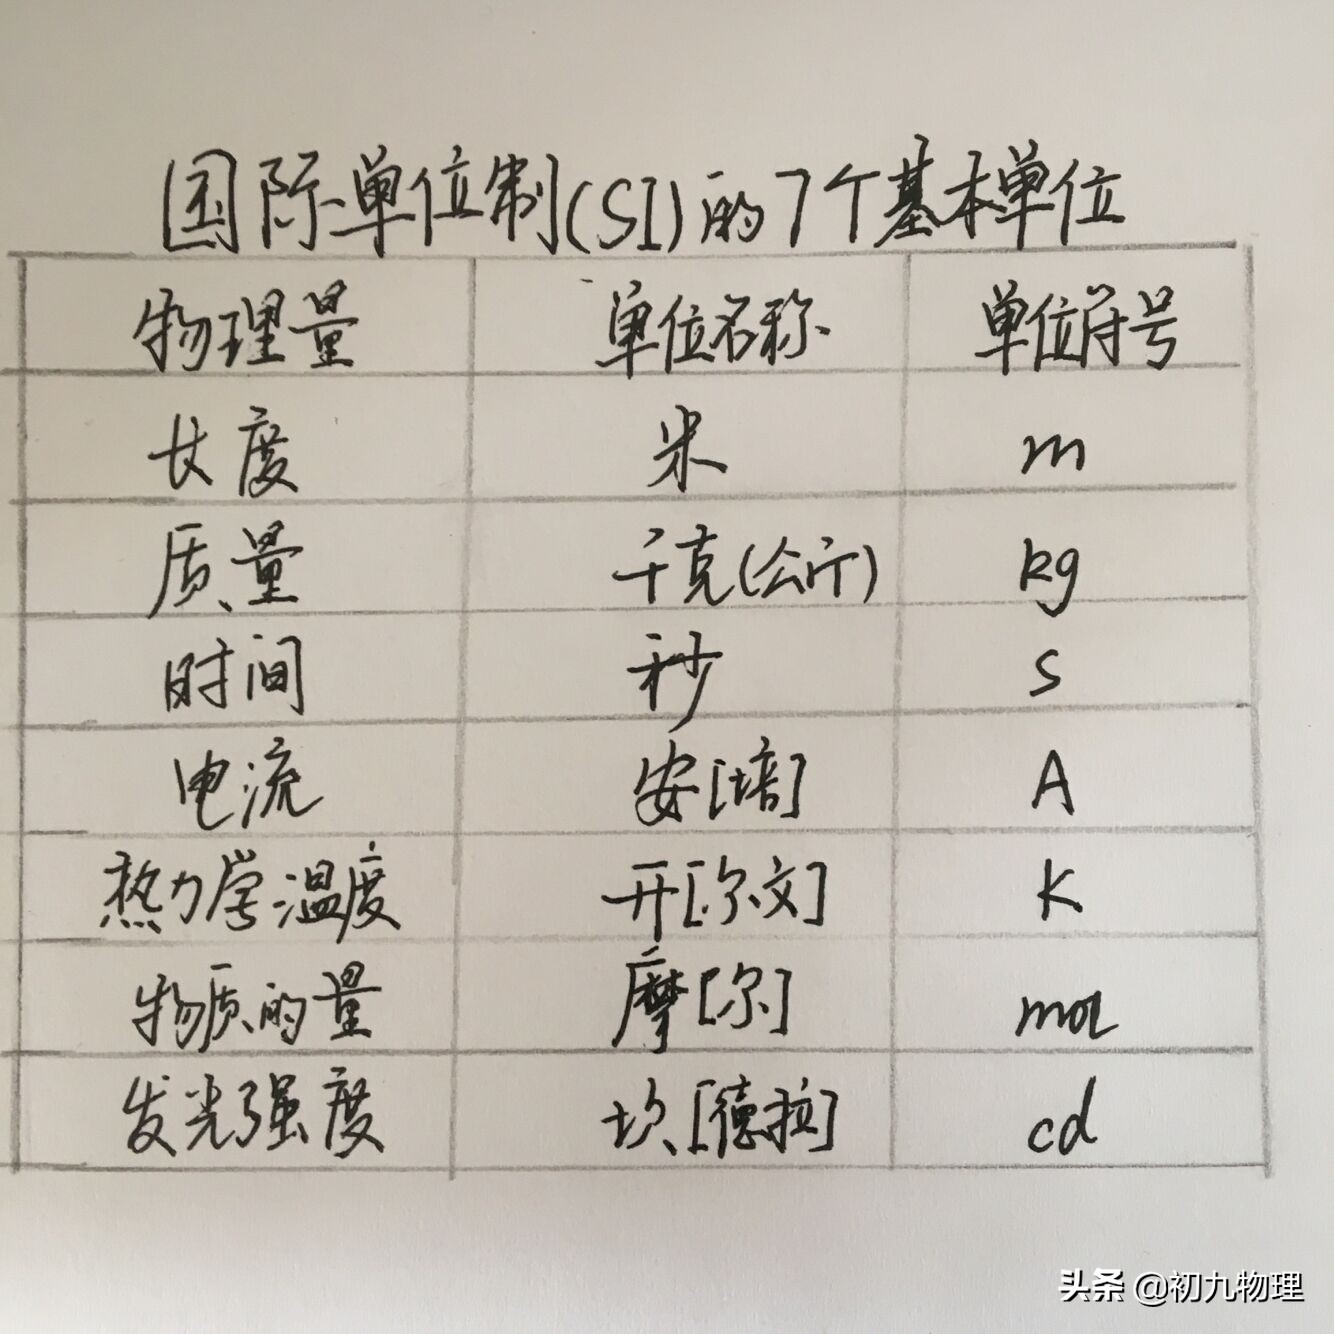 国际单位制(SI)的7个基本单位
物理量 单位名称 单位符号
长度 米 m
质量 千克(公斤) kg
时间 秒 s
电流 安[培] A
热力学温度 开[尔文] K
物质的量 摩[尔] mol
发光强度 坎[德拉] cd
头条 @初九物理